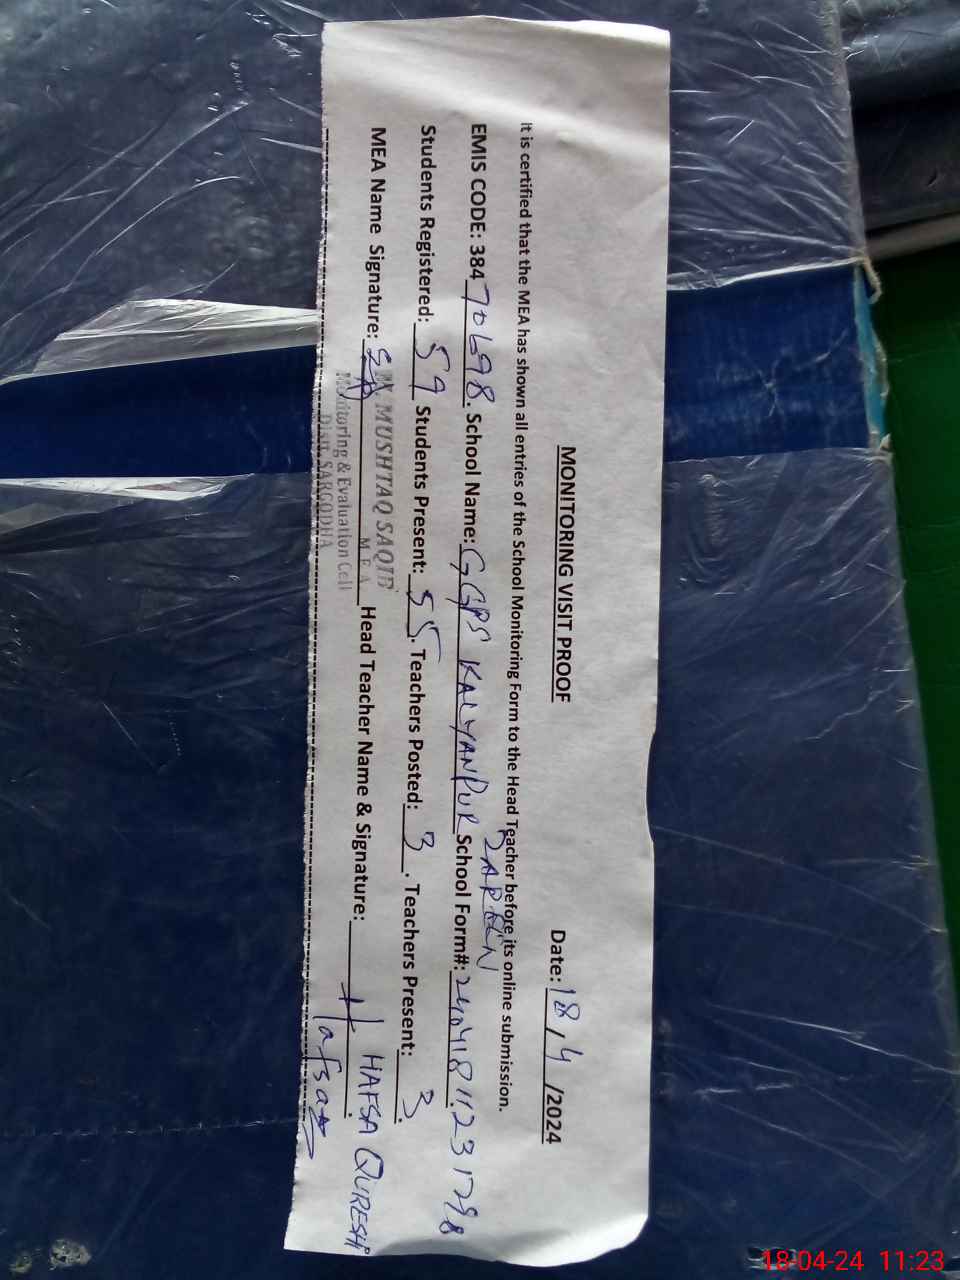 MONITORING VISIT PROOF
Date: 18/4/2024
It is certified that the MEA has shown all entries of the School Monitoring Form to the Head Teacher before its online submission.
EMIS CODE: 38470698. School Name: GGPS KALYANPUR School Form#:
Students Registered: 59 Students Present: 55. Teachers Posted: 3. Teachers Present: 3.
MEA Name Signature: Head Teacher Name & Signature: HAFSA QURESHI
MUSHTAQ SAQIB
M E A
Monitoring & Evaluation Cell
Distt. SARGODHA
Hafsa
18-04-24 11:23